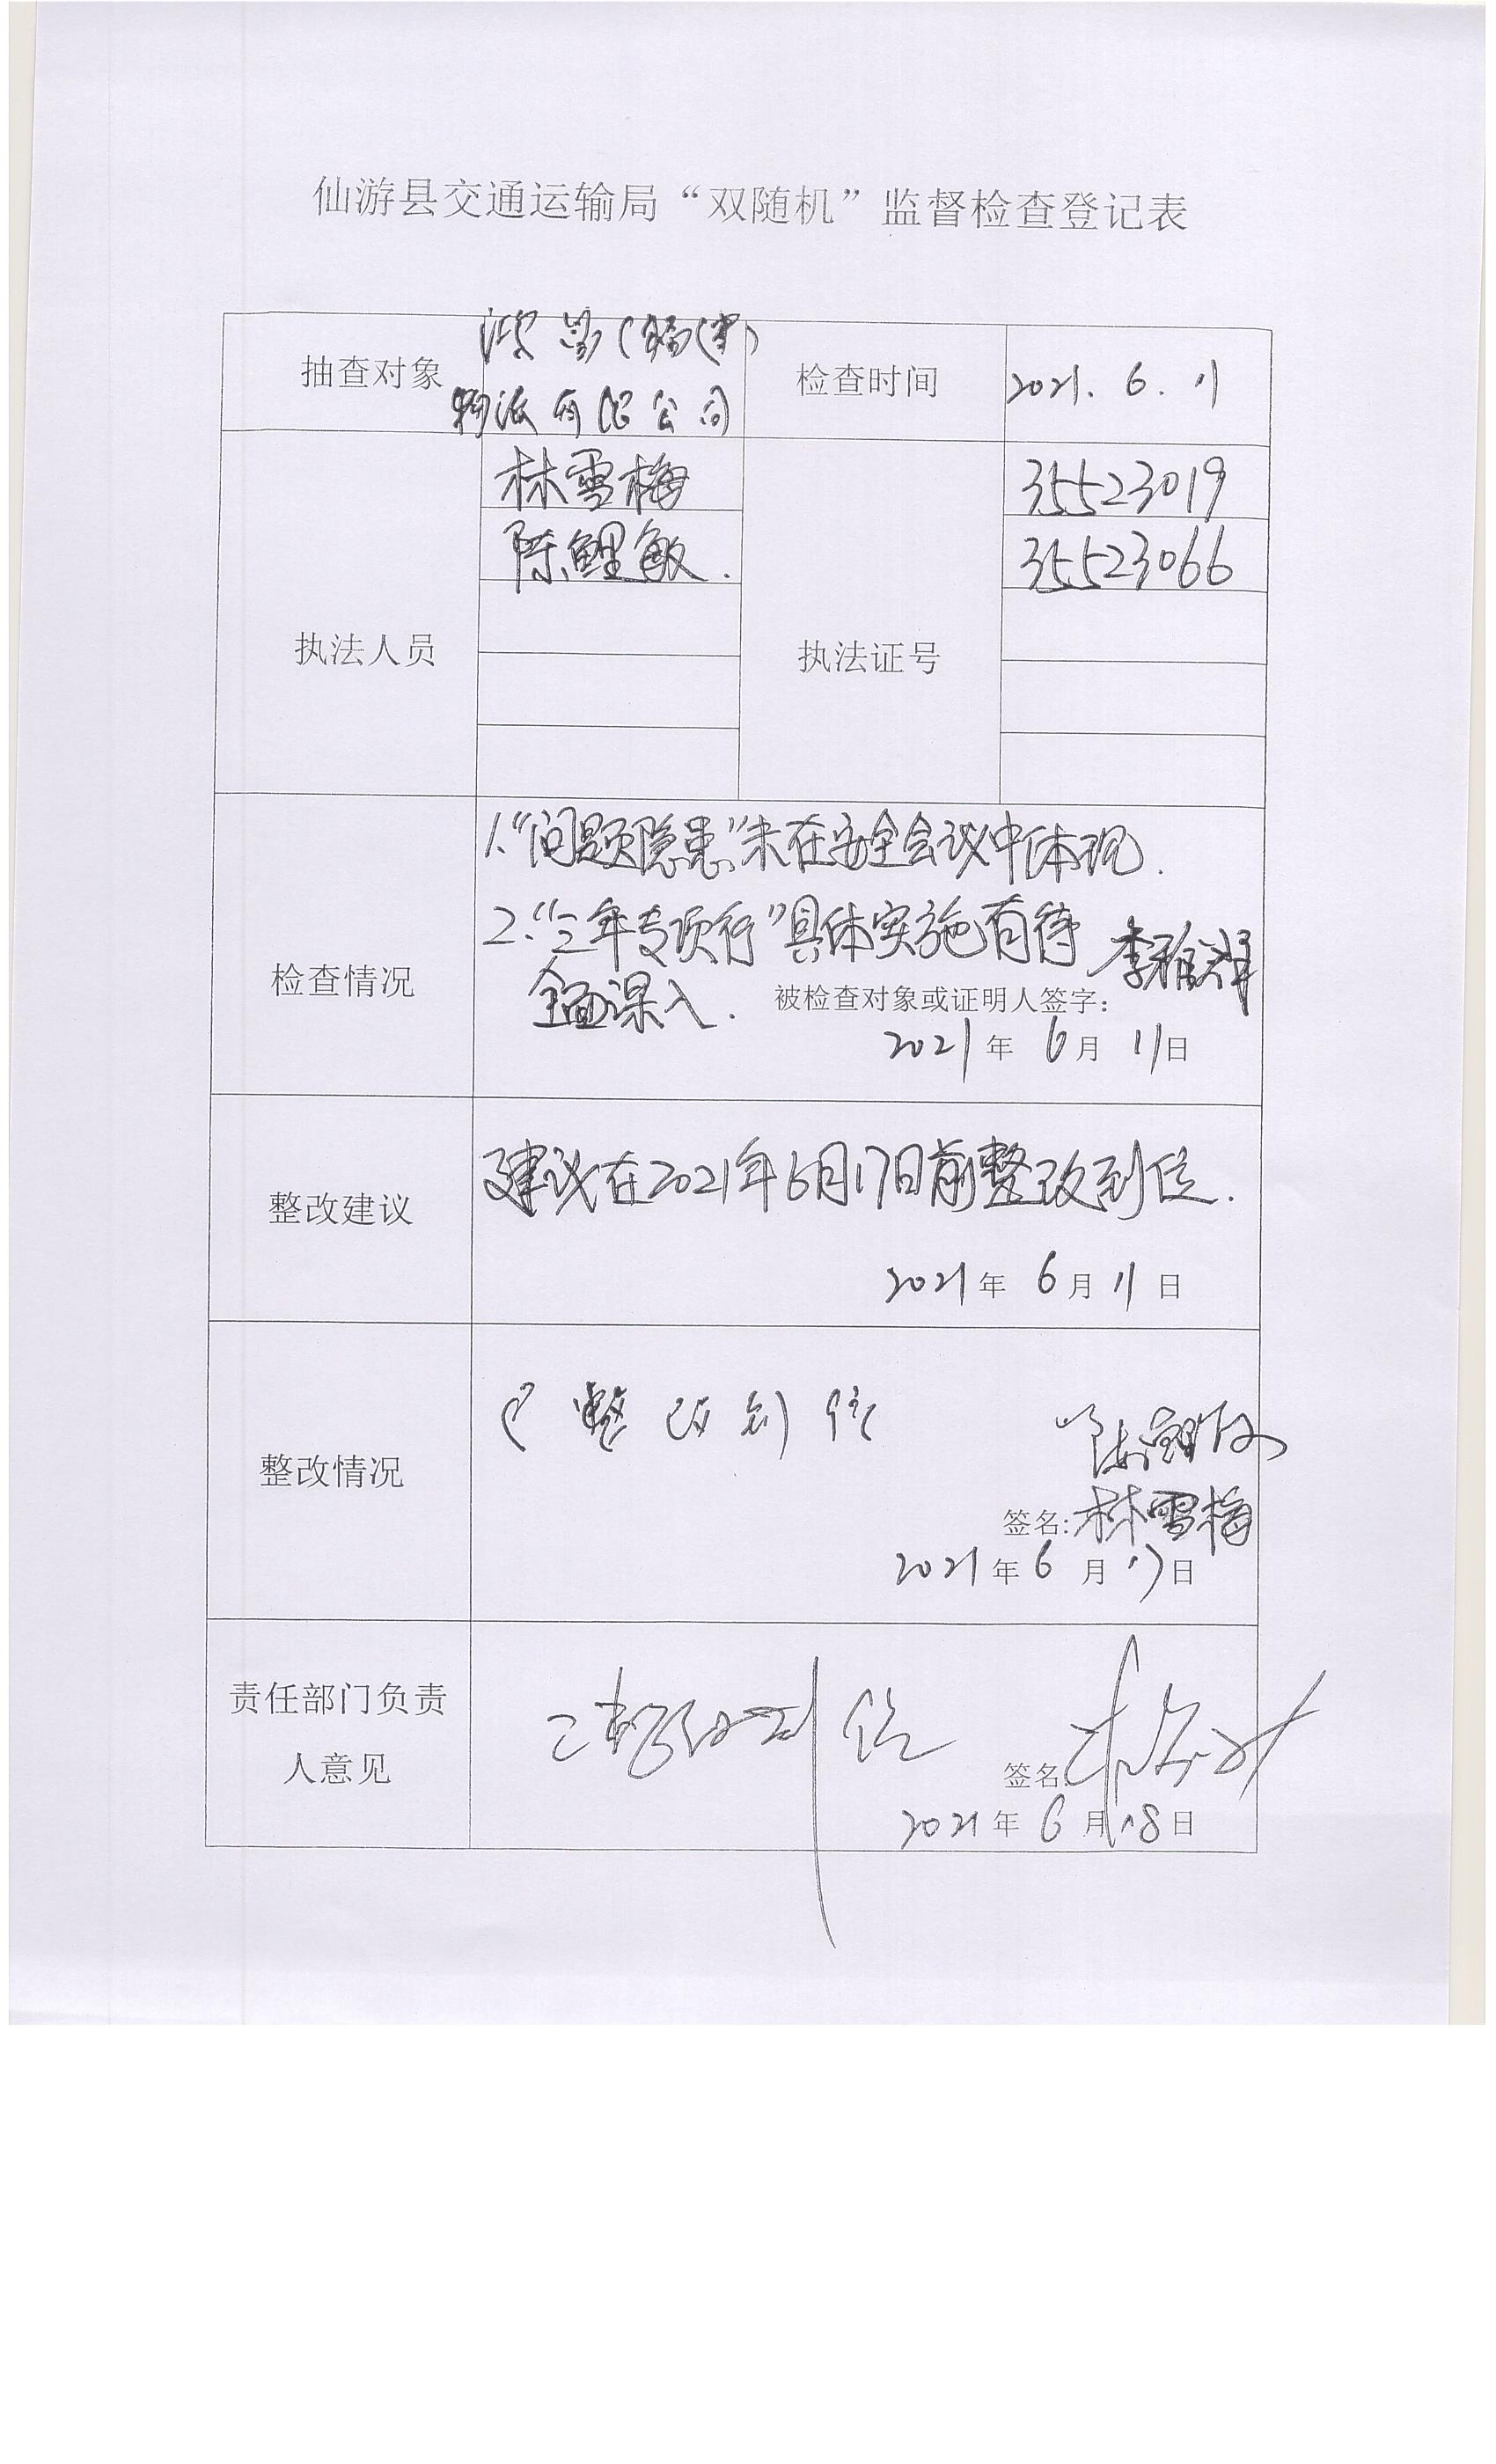 仙游县交通运输局“双随机”监督检查登记表
抽查对象
(福建)
物流有限公司
检查时间
2021.6.11
执法人员
林雪梅
陈鲤敏.
执法证号
35523019
35523066
检查情况
1.“问题隐患”未在安全会议中体现.
2.“三年专项行”具体实施有待
全面深入.
被检查对象或证明人签字:
2021年6月11日
整改建议
建议在2021年6月17日前整改到位.
2021年6月11日
整改情况
已整改到位
签名:林雪梅
2021年6月17日
责任部门负责
人意见
已整改到位
签名:
2021年6月18日